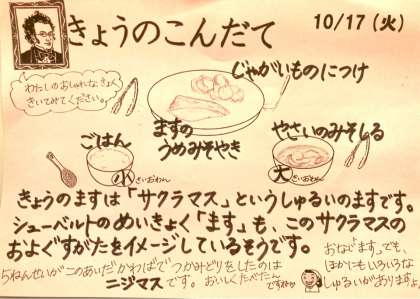 きょうのこんだて
10/17(火)
わたしのおしゃれなきょく
きいてみてください。
じゃがいものにつけ
ごはん
ますの
うめみそやき
やさいのみそしる
小
さいおわん
大
きいおわん
きょうのますは「サクラマス」というしゅるいのますです。
シューベルトのめいきょく「ます」も、このサクラマスの
およぐすがたをイメージしているそうです。
1ねんせいがこのあいだかわばでつかみどりをしたのは
ニジマスです。おいしくたべたん
ですよね
おなじますでも、
ほかにもいろいろな
しゅるいがありますよ